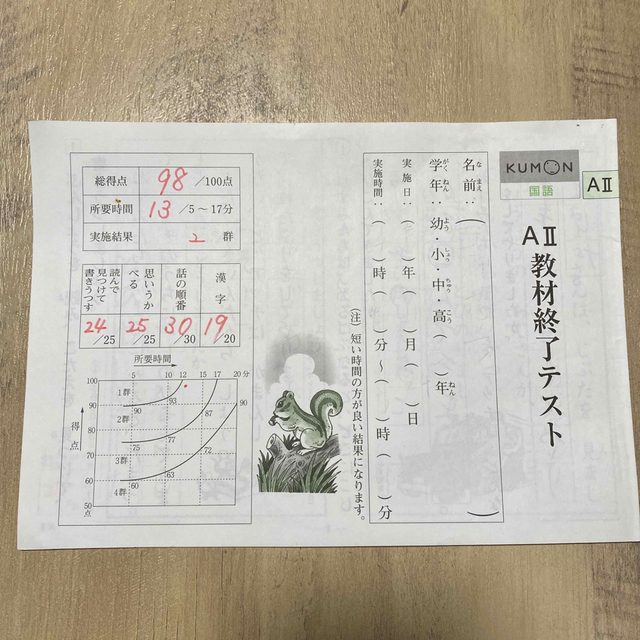 KUMON
国語
AⅡ
AⅡ教材終了テスト
名前：（ ）
なまえ
学年：幼・小・中・高（ ）年
がくねん よう しょう ちゅう こう ねん
実施日：（ ）年（ ）月（ ）日
実施時間：（ ）時（ ）分～（ ）時（ ）分
（注）短い時間の方が良い結果になります。
総得点 98 /100点
所要時間 13 /5～17分
実施結果 2 群
漢字
19/20
話の順番
30/30
思いうかべる
25/25
読んで見つけて書きうつす
24/25
所要時間
5 10 15 17 20分
12 90
得点
100 90 80 70 60 50点
1群 2群 3群 4群
90 93
75 77 87
60 63 72